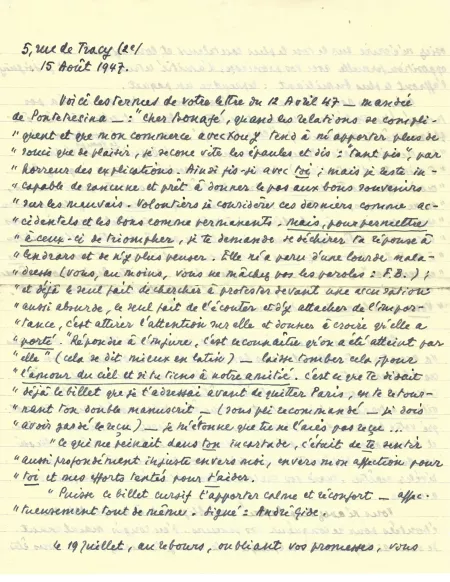 5, rue de Tracy (2e)
15 Août 1947.
Voici les termes de votre lettre du 12 Avril 47 — mandée
de Pontresina — : "Cher Bonafé, quand les relations se compli-
"quent et que mon commerce avec X ou Z tend à m'apporter plus de
"souci que de plaisir, je secoue vite les épaules et dis : "tant pis", par
"horreur des explications. Ainsi fis-je avec toi ; mais je reste in-
"capable de rancune et prêt à donner le pas aux bons souvenirs
"sur les mauvais. Volontiers je considère ces derniers comme ac-
"cidentels et les bons comme permanents. Mais, pour permettre
"à ceux-ci de triompher, je te demande de déchirer ta réponse à
"Lendrars et de n'y plus penser. Elle m'a paru d'une lourde mala-
"dresse (vous, au moins, vous ne mâchez pas les paroles : F.B.) ;
"et déjà le seul fait de chercher à protester devant une accusation
"aussi absurde, le seul fait de l'écouter et d'y attacher de l'impor-
"tance, c'est attirer l'attention sur elle et donner à croire qu'elle a
"porté. Répondre à l'injure, c'est reconnaître qu'on a été atteint par
"elle" (cela se dit mieux en latin) — laisse tomber cela, pour
"l'amour du ciel et si tu tiens à notre amitié. C'est ce que te disait
"déjà le billet que je t'adressai avant de quitter Paris, en te retour-
"nant ton double manuscrit — (sous pli recommandé — je dois
"avoir gardé le reçu) — je m'étonne que tu ne l'aies pas reçu ...
"Ce qui me peinait dans ton incartade, c'était de te sentir
"aussi profondément injuste envers moi, envers mon affection pour
"toi et mes efforts tentés pour t'aider.
"Puisse ce billet cursif t'apporter calme et réconfort — affec-
"tueusement tout de même. Signé : André Gide.
Le 19 juillet, au rebours, oubliant vos promesses, vous